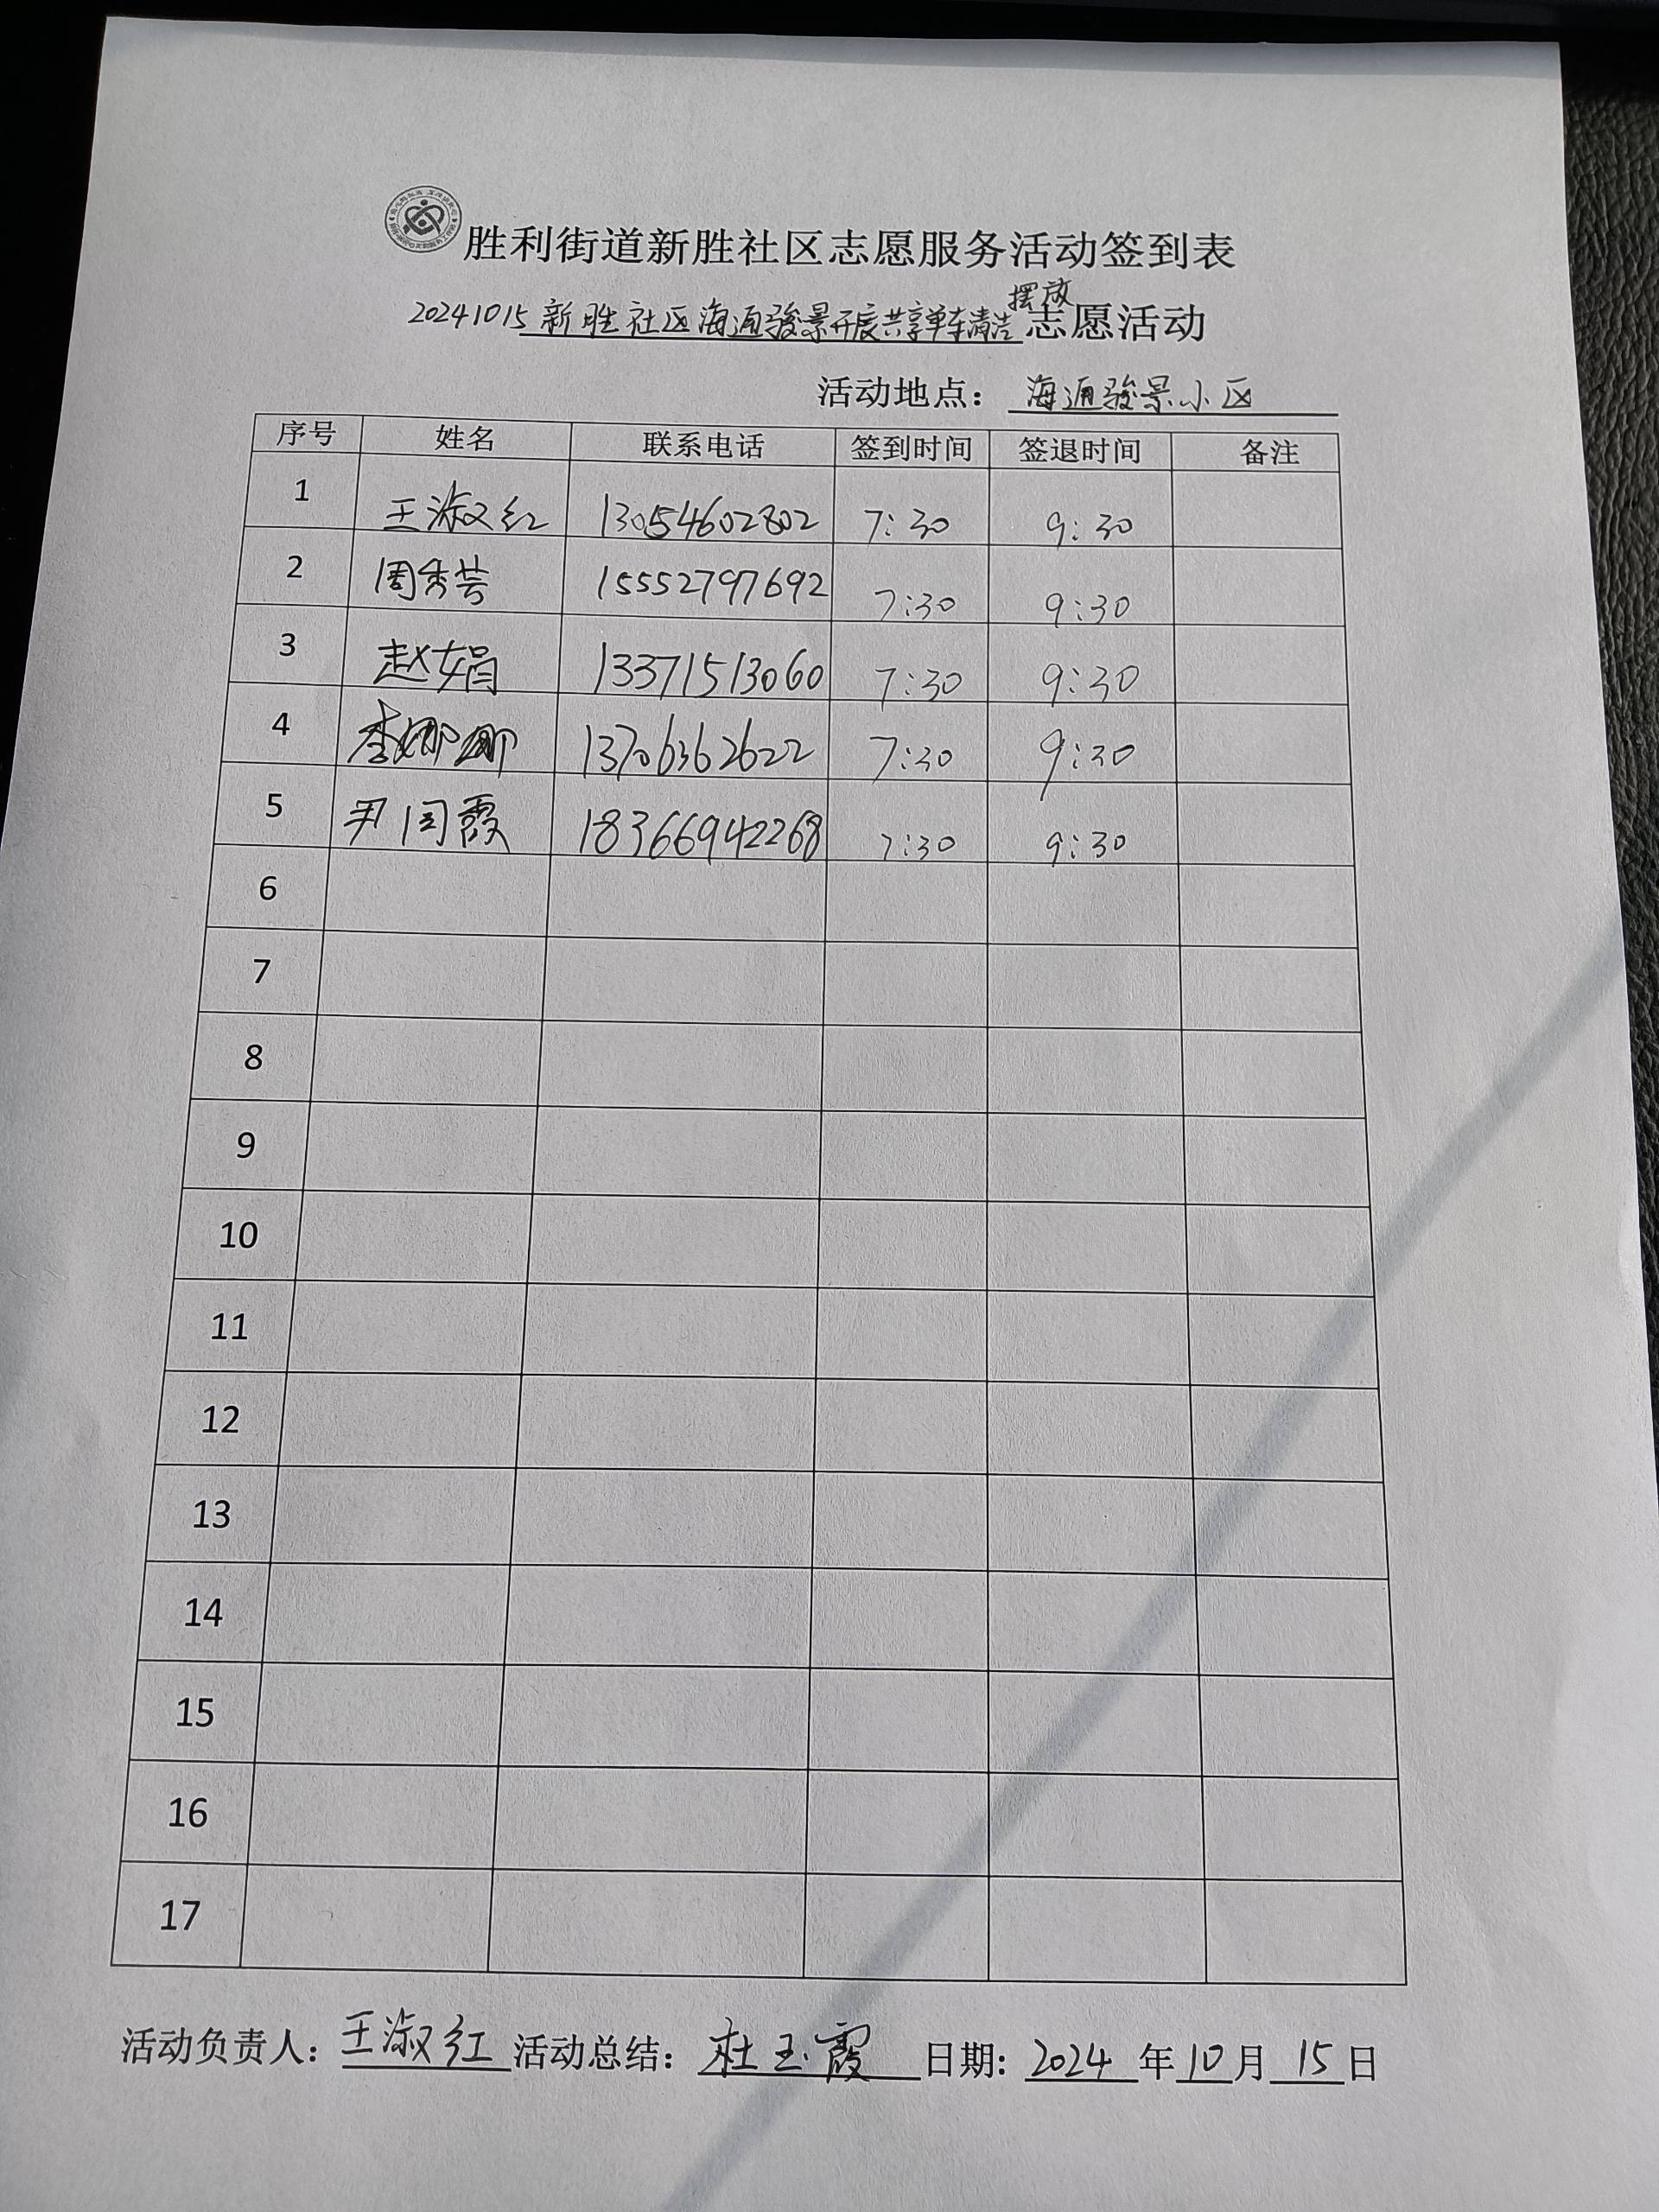 胜利街道新胜社区志愿服务活动签到表
20241015新胜社区海通骏景开展共享单车清洁摆放志愿活动
活动地点：海通骏景小区
序号 姓名 联系电话 签到时间 签退时间 备注
1 王淑红 13054602802 7:30 9:30
2 周秀芸 15552797692 7:30 9:30
3 赵娟 13371513060 7:30 9:30
4 李娜娜 13706362622 7:30 9:30
5 尹国霞 18366942268 7:30 9:30
6
7
8
9
10
11
12
13
14
15
16
17
活动负责人：王淑红 活动总结：杜玉霞 日期：2024年10月15日